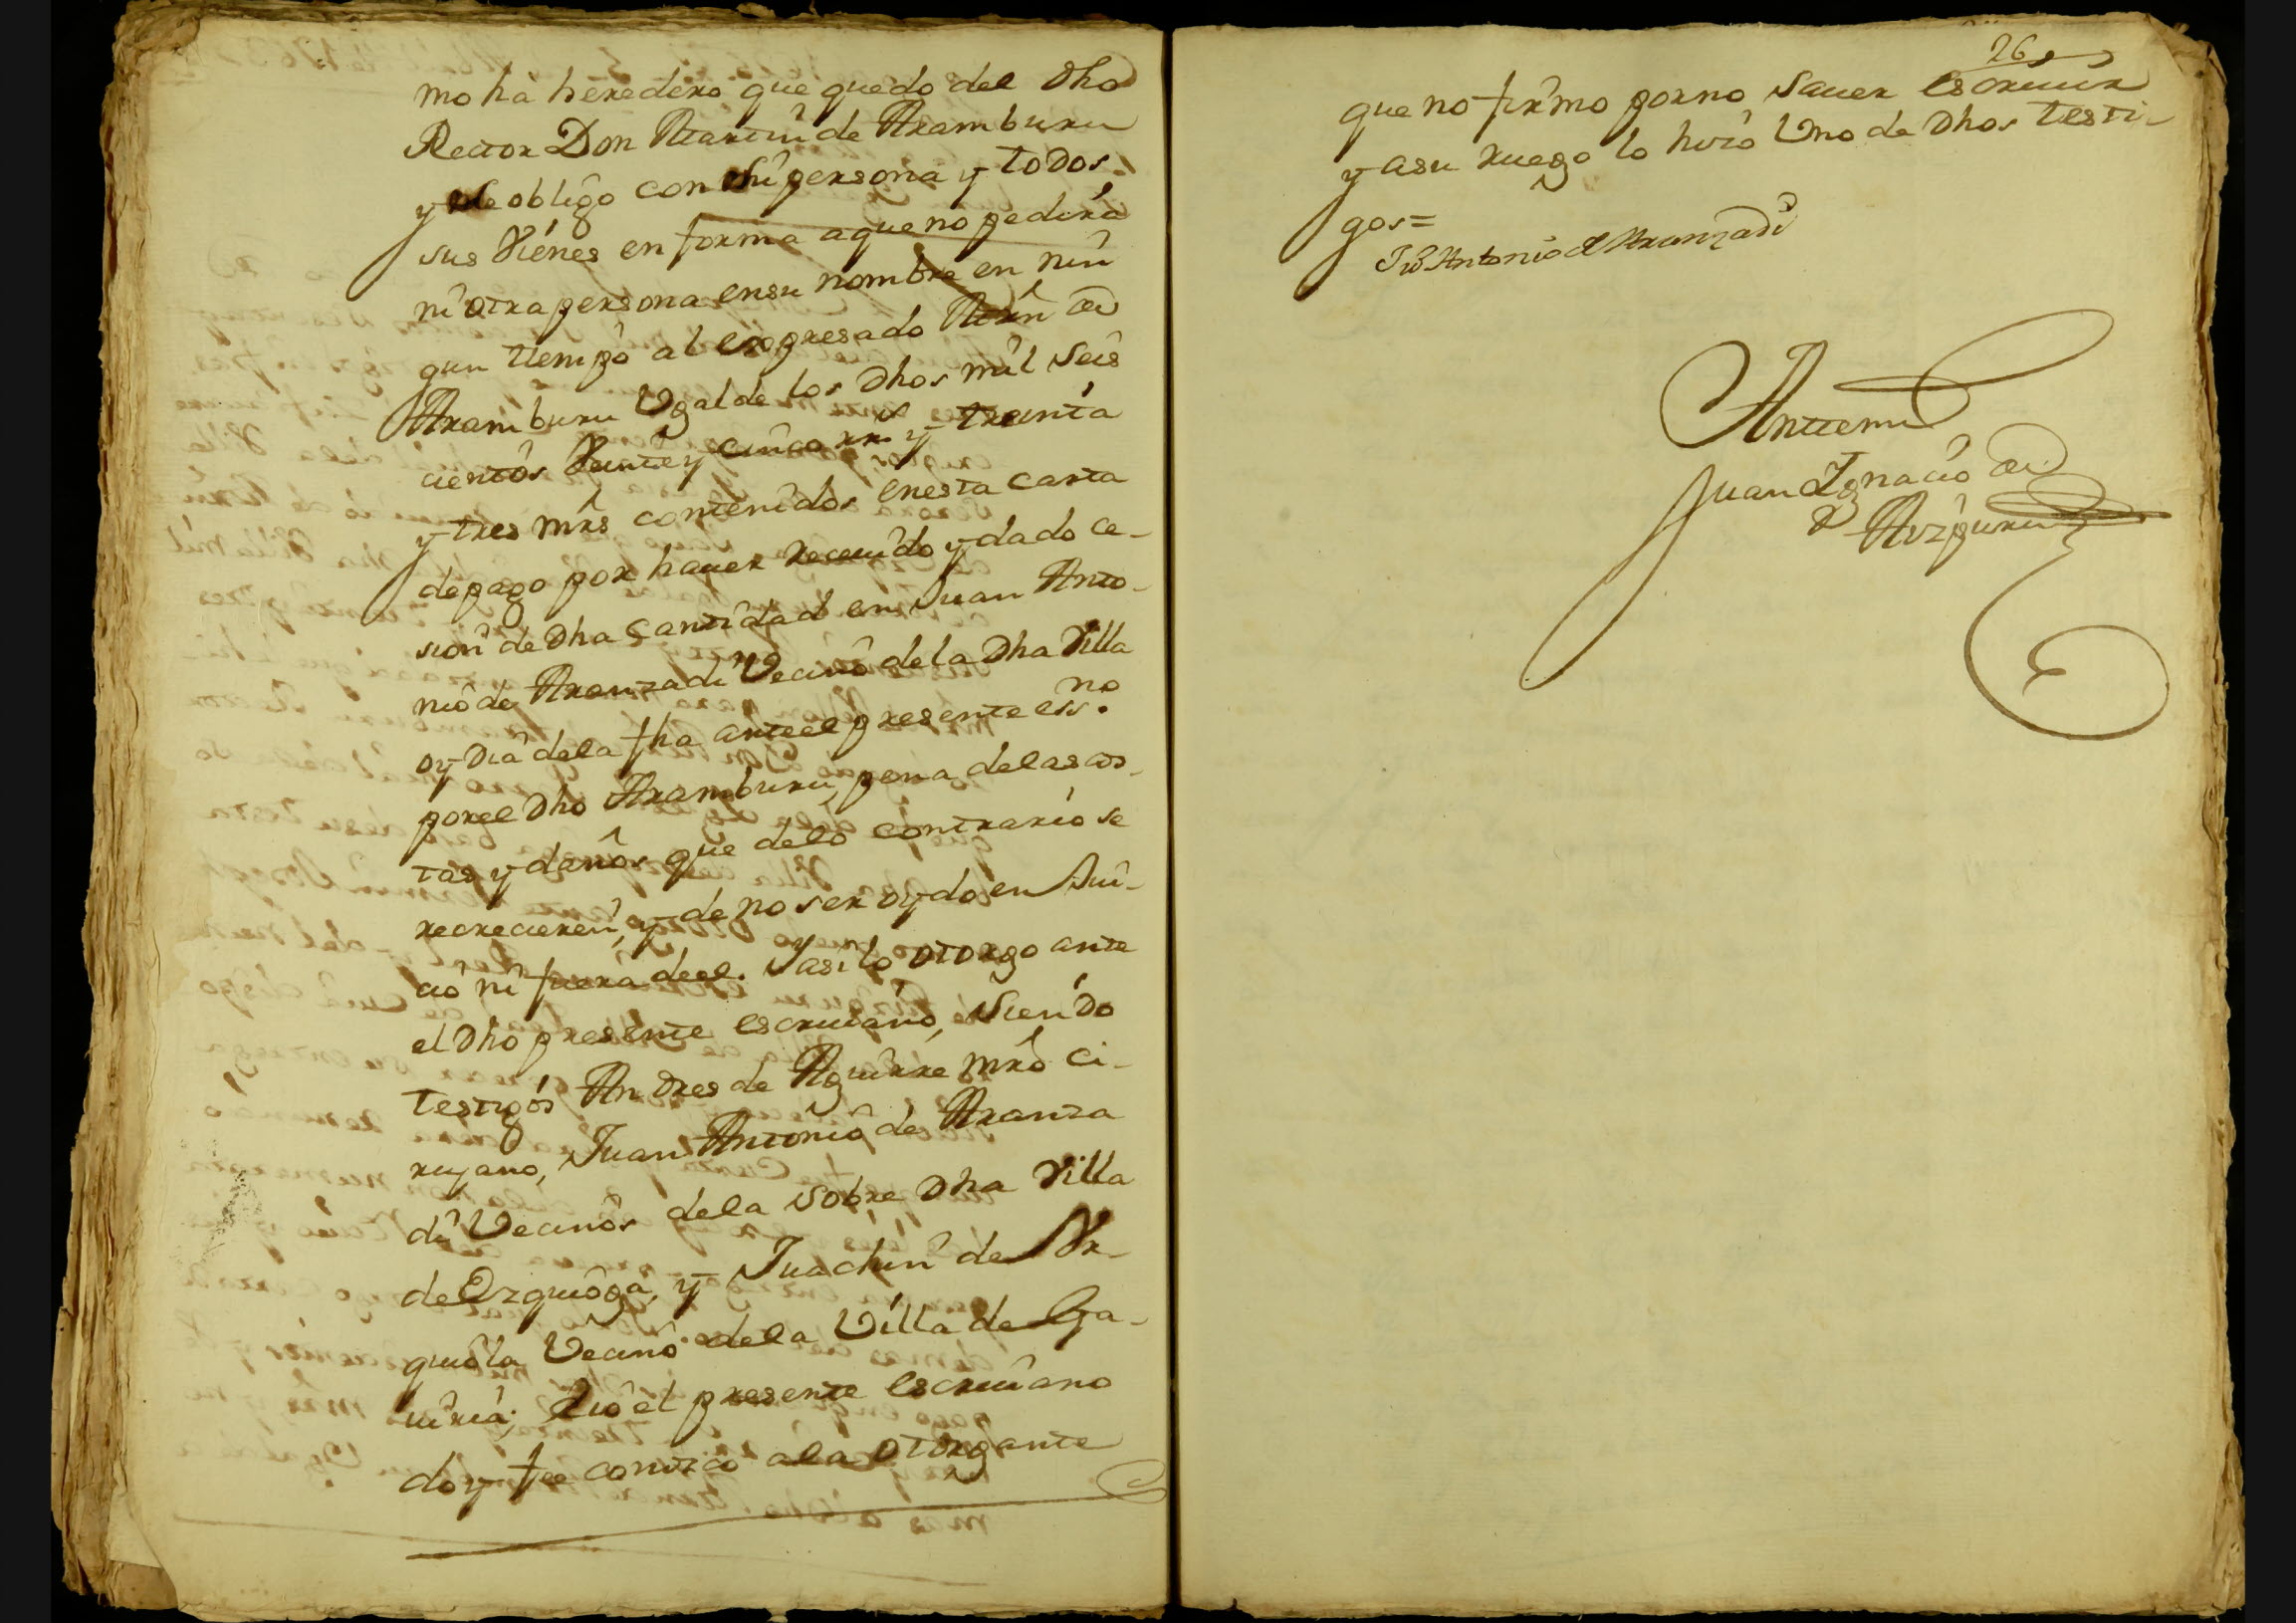 mo hà heredero que quedo del Dho
Rector Don Martin de Aramburu
y se obligo con su persona y todos
sus Vienes en forma a que no pedira
ni otra persona en su nombre en nin
gun tiempo al expresado Mrn de
Aramburu Ugalde los Dhos mil Seis
cientos Veinte y cinco rrs y treinta
y tres mrs contenidos en esta carta
de pago por hauer receuido y dado ce-
sion de Dha Cantidad en Juan Anto-
nio de Aranzadi Vecino de la Dha Villa
oy dia de la fha ante el presente essno.
por el Dho Aramburu, pena de las cos-
tas y daños que de lo contrario se
recrecieren, y de no ser oydo en Jui-
cio ni fuera de el. Y asi lo otorgo ante
el Dho presente escriuano, Siendo
testigos Andres de Aguirre mro Ci-
rujano, Juan Antonio de Aranza
di Vecinos de la sobre Dha Villa
de Ozquiòga, y Juachin de Ar-
quiola Vecino de la Villa de Ga-
uiria; Èio el presente escriuano
doy fee conozco a la otorgante
26
que no firmo por no Sauer escriuir
y a su ruego lo hizo Uno de Dhos testi-
gos=
Jn Antonio de Aranzadi
Antemi
Juan Ignacio de
Aizpuru